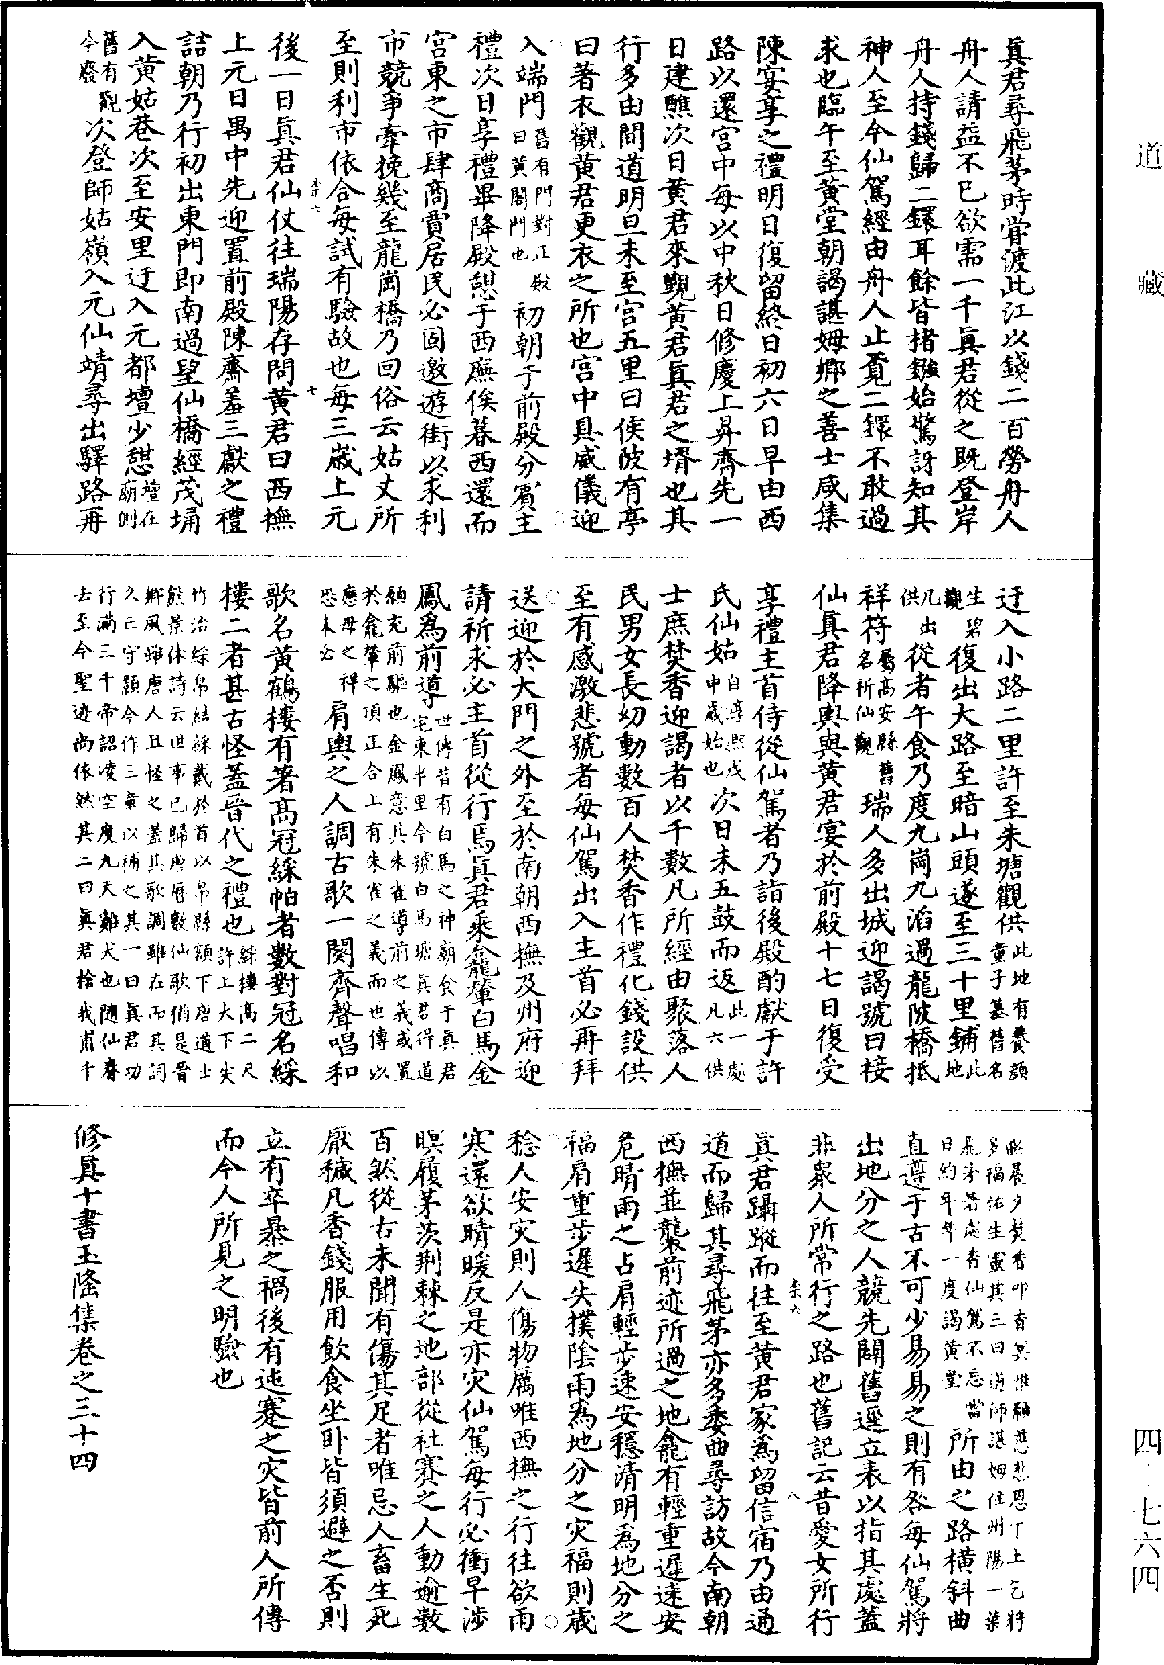 真君尋飛茅時嘗渡此江以錢二百勞舟人
舟人請益不已欲需一千真君從之既登岸
舟人持錢歸二鐶耳餘皆楮鏹始驚訝知其
神人至今仙駕經由舟人止覔二鐶不敢過
求也臨午至黃堂朝謁諶姆鄉之善士咸集
陳宴享之禮明日復留終日初六日早由西
路以還宮中每以中秋日修慶上昇齋先一
日建醮次日黃君來覲黃君真君之壻也其
行多由間道明旦未至宮五里曰侯陂有亭
曰著衣觀黃君更衣之所也宮中具威儀迎
入端門舊有門對正殿曰黃閣門也初朝于前殿分賓主
禮次日享禮畢降殿憩于西廡俟暮西還而
宮東之市肆商賈居民必固邀遊街以求利
市競爭牽挽幾至龍崗橋乃回俗云姑丈所
至則利市依合每試有驗故也每三歲上元
後一日真君仙仗往瑞陽存問黃君曰西撫
上元日禺中先迎置前殿陳齋羞三獻之禮
詰朝乃行初出東門即南過望仙橋經茂埇
入黃姑巷次至安里迂入元都壇少憇壇在廟側
舊有觀今廢次登師姑嶺入元仙靖尋出驛路再
迂入小路二里許至朱塘觀供此地有養額童子墓舊名
生碧觀復出大路至暗山頭遂至三十里鋪地此
凡出供從者午食乃度九崗九滔過龍陂橋抵
祥符屬高安縣舊名祈仙觀瑞人多出城迎謁號曰接
仙真君降輿與黃君宴於前殿十七日復受
享禮主首侍從仙駕者乃詣後殿酌獻于許
氏仙姑自淳熙戊申歲始也次日未五鼓而返此一處凡六供
士庶焚香迎謁者以千數凡所經由聚落人
民男女長幼動數百人焚香作禮化錢設供
至有感激悲號者每仙駕出入主首必再拜
送迎於大門之外至於南朝西撫及州府迎
請祈求必主首從行焉真君乘龕輦白馬金
鳳為前導世傳昔有白馬之神廟食于真君宅東半里今號白馬塘真君得道
願充前驅也金鳳意其朱雀導前之義或置於龕輦之頂正合上有朱雀之義而也傳以
肩輿之人調古歌一闋齊聲唱和
歌名黃鶴樓有著高冠綵帕者數對冠名綵
樓二者甚古怪蓋晉代之禮也綵樓高二尺許上大下尖
竹治綵帛結綵戴於首以帛縣頷下唐道士熊景休詩云但事已歸唐曆數仙歌猶是晉
鄉風歸唐人且怪之蓋其歌調雖在而其詞久亡守願今作三章以補之其一曰真君功
行滿三千帝詔凌空度九天雞犬也隨仙眷去至今聖迹尚依然其二曰真君捨我甫千
日約年年一度謁黃堂所由之路橫斜曲
直遵于古不可少易易之則有咎每仙駕將
出地分之人競先闢舊逕立表以指其處蓋
非衆人所常行之路也舊記云昔愛女所行
真君躡蹤而往至黃君家為留信宿乃由通
道而歸其尋飛茅亦多委曲尋訪故今南朝
西撫並襲前迹所過之地龕有輕重遲速安
危晴雨之占肩輕步速安穩清明為地分之
福肩重步遲失撲陰雨為地分之灾福則歲
稔人安灾則人傷物厲唯西撫之行往欲雨
寒還欲晴暖反是亦灾仙駕每行必衝早涉
暝履茅茨荆棘之地部從社賽之人動逾數
百然從古未聞有傷其足者唯忌人畜生死
厭穢凡香錢服用飲食坐卧皆須避之否則
立有卒暴之禍後有迍蹇之灾皆前人所傳
而今人所見之明驗也
修真十書玉隆集卷之三十四
道藏
四·七六四